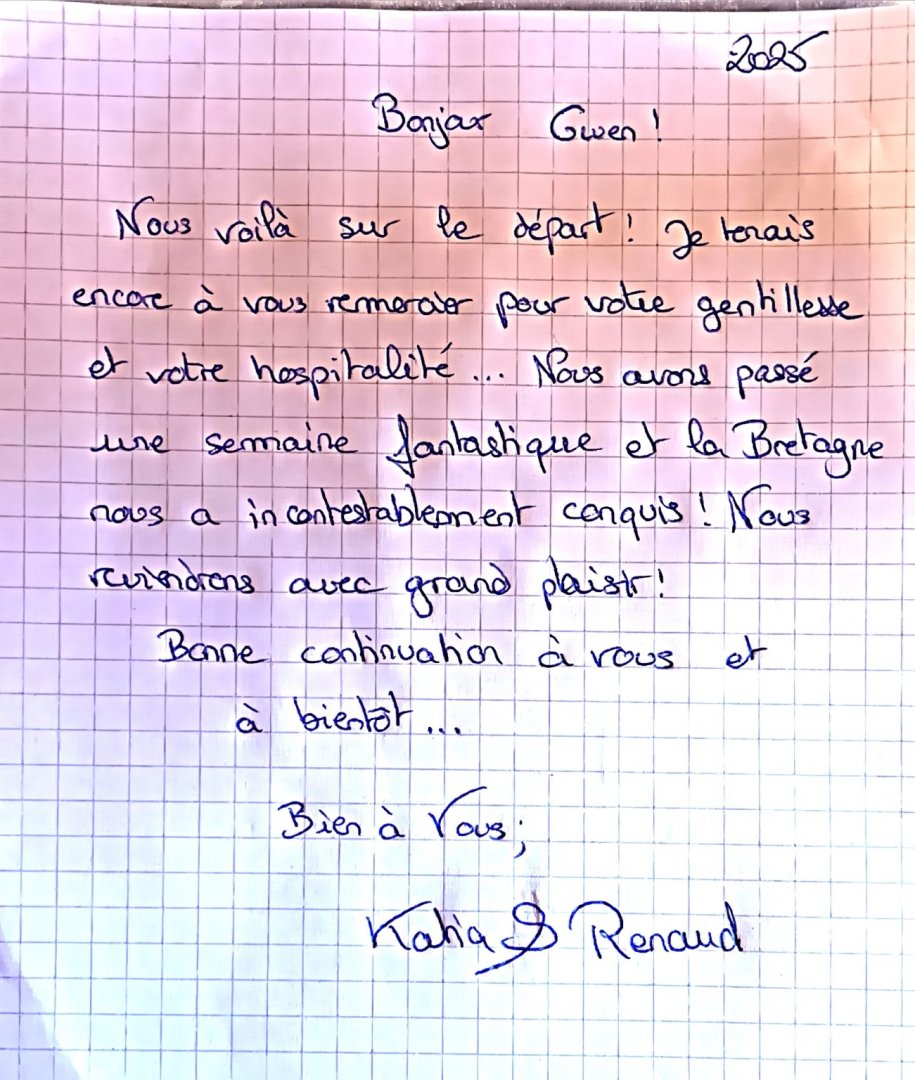 2025
Bonjour Gwen !
Nous voilà sur le départ ! Je tenais
encore à vous remercier pour votre gentillesse
et votre hospitalité... Nous avons passé
une semaine fantastique et la Bretagne
nous a incontestablement conquis ! Nous
reviendrons avec grand plaisir !
Bonne continuation à vous et
à bientôt...
Bien à Vous;
Katia & Renaud